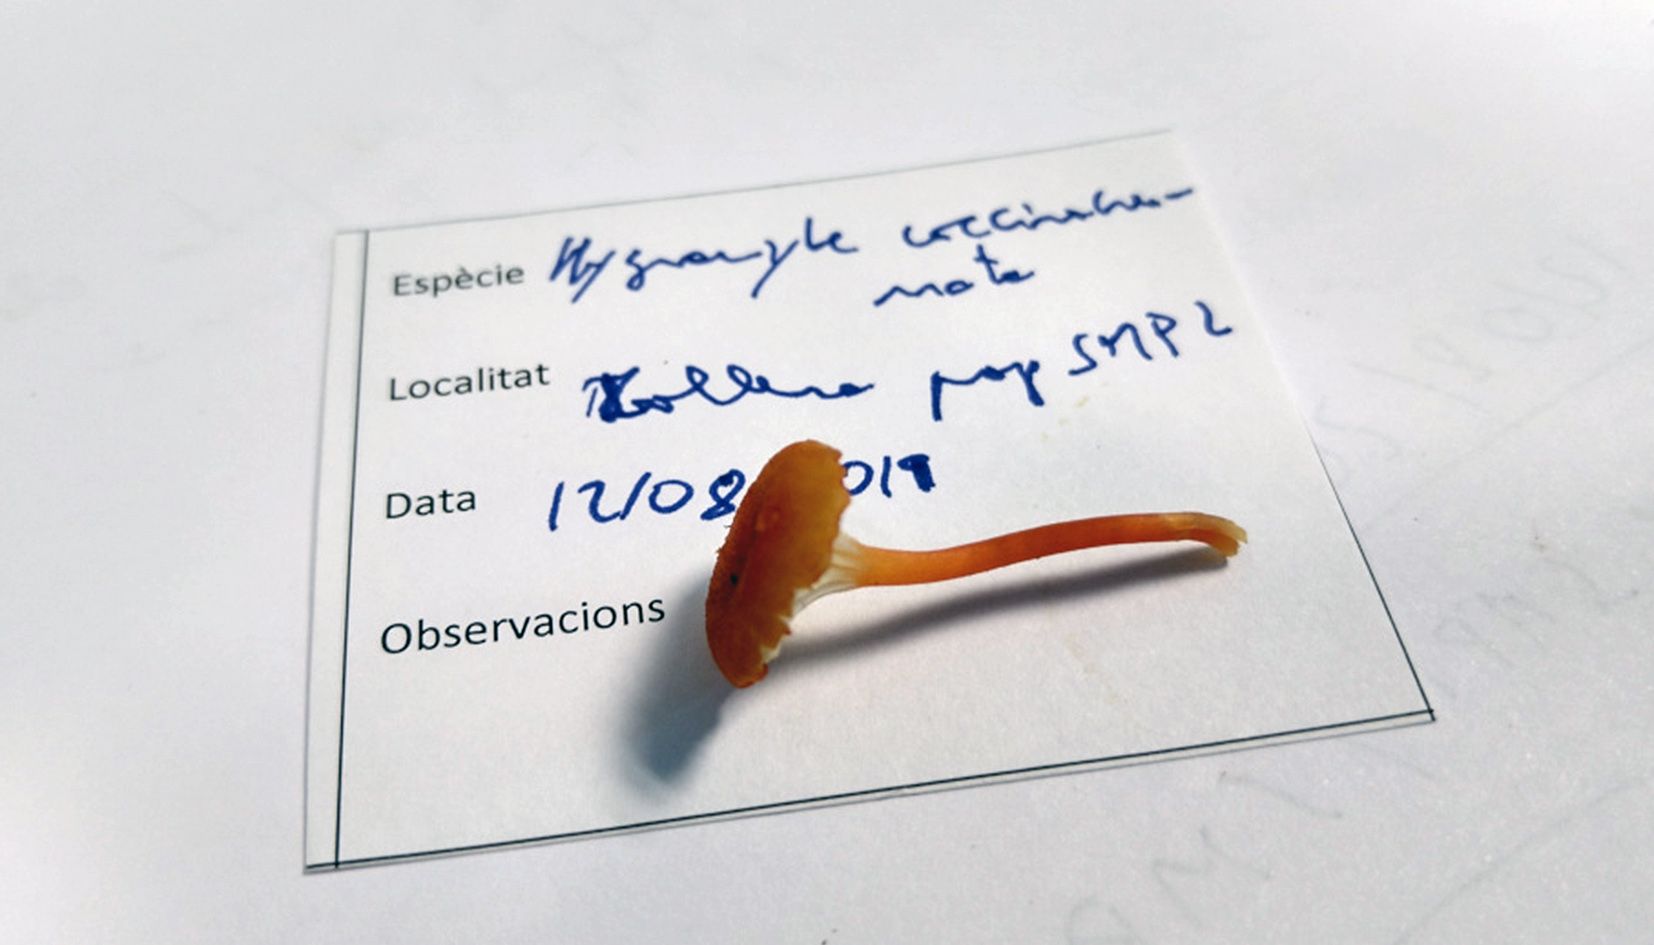 Espècie Hygrocybe coccineocre-
nata
Localitat Mollera prop SMP 2
Data 12/08 019
Observacions